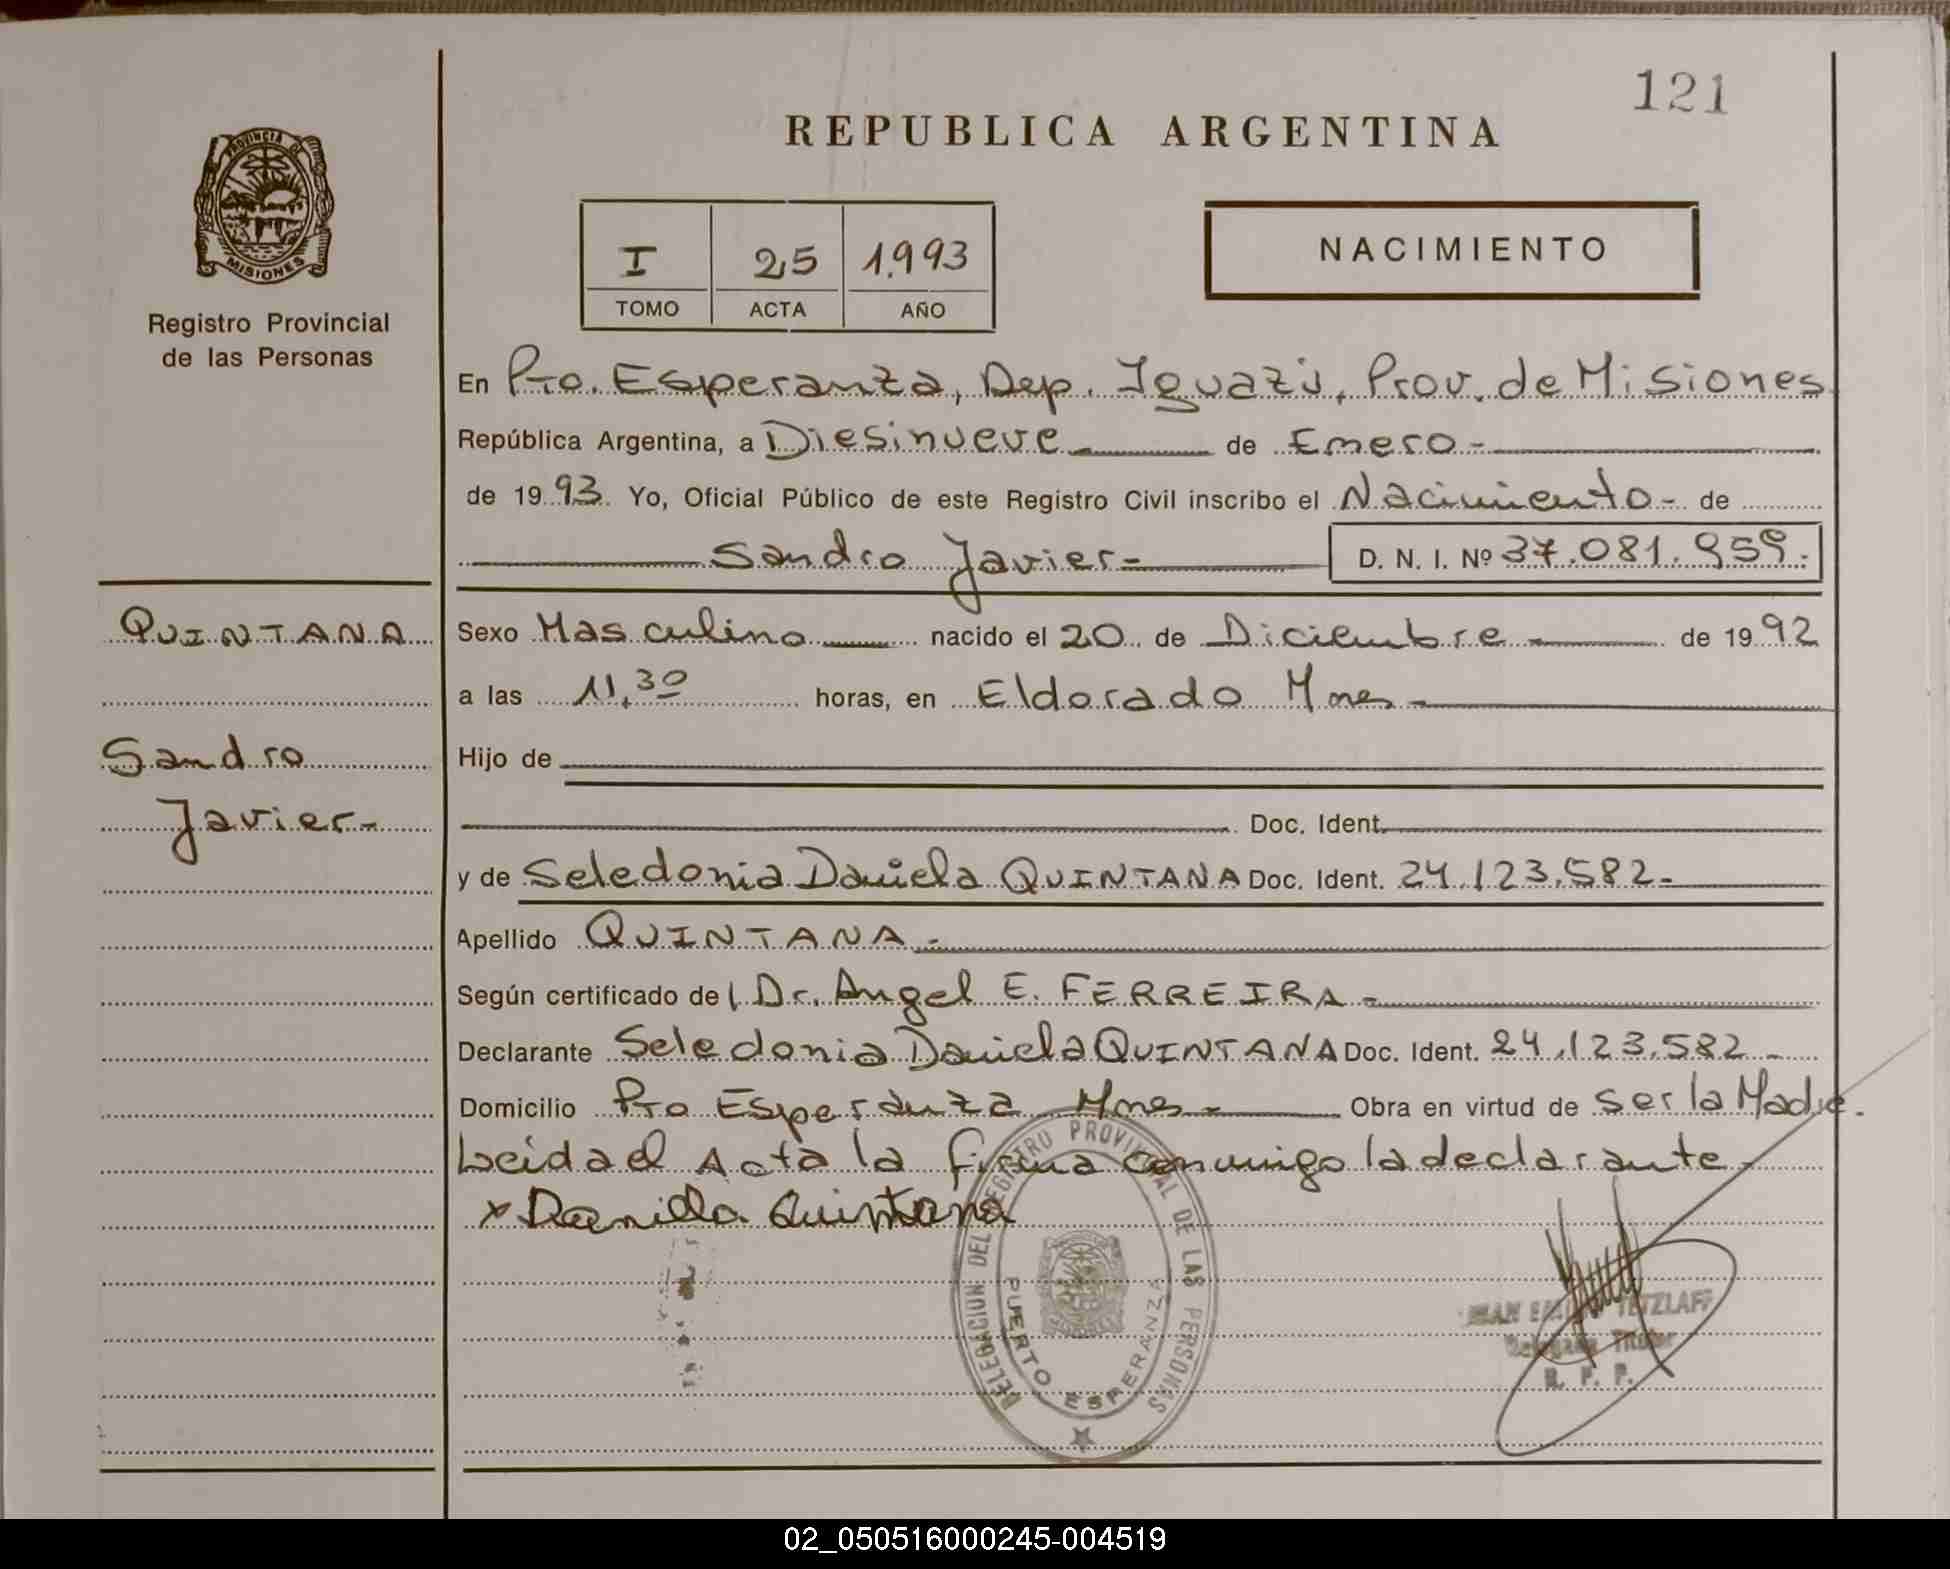 121
REPUBLICA ARGENTINA
PROVINCIA DE
MISIONES
Registro Provincial
de las Personas
I 25 1.993
TOMO ACTA AÑO
NACIMIENTO
En Pto. Esperanza, Dep. Iguazú, Prov. de Misiones
República Argentina, a Diesinueve de Enero-
de 1993. Yo, Oficial Público de este Registro Civil inscribo el Nacimiento- de
Sandro Javier- D. N. I. Nº 37.081.959.
QUINTANA
Sandro
Javier-
Sexo Masculino nacido el 20 de Diciembre de 1992
a las 11,30 horas, en Eldorado Mnes-
Hijo de
Doc. Ident.
y de Seledonia Daniela QUINTANA Doc. Ident. 24.123.582-
Apellido QUINTANA-
Según certificado del Dr. Angel E. FERREIRA-
Declarante Seledonia Daniela QUINTANA Doc. Ident. 24.123.582-
Domicilio Pto Esperanza Mnes- Obra en virtud de ser la Madre.
Leida el Acta la firma conmigo la declarante-
x Daniela Quintana
DELEGACION DEL REGISTRO PROVINCIAL DE LAS PERSONAS
PUERTO ESPERANZA
TETZLAFF
Delegado Titular
R. P. P.
02_050516000245-004519